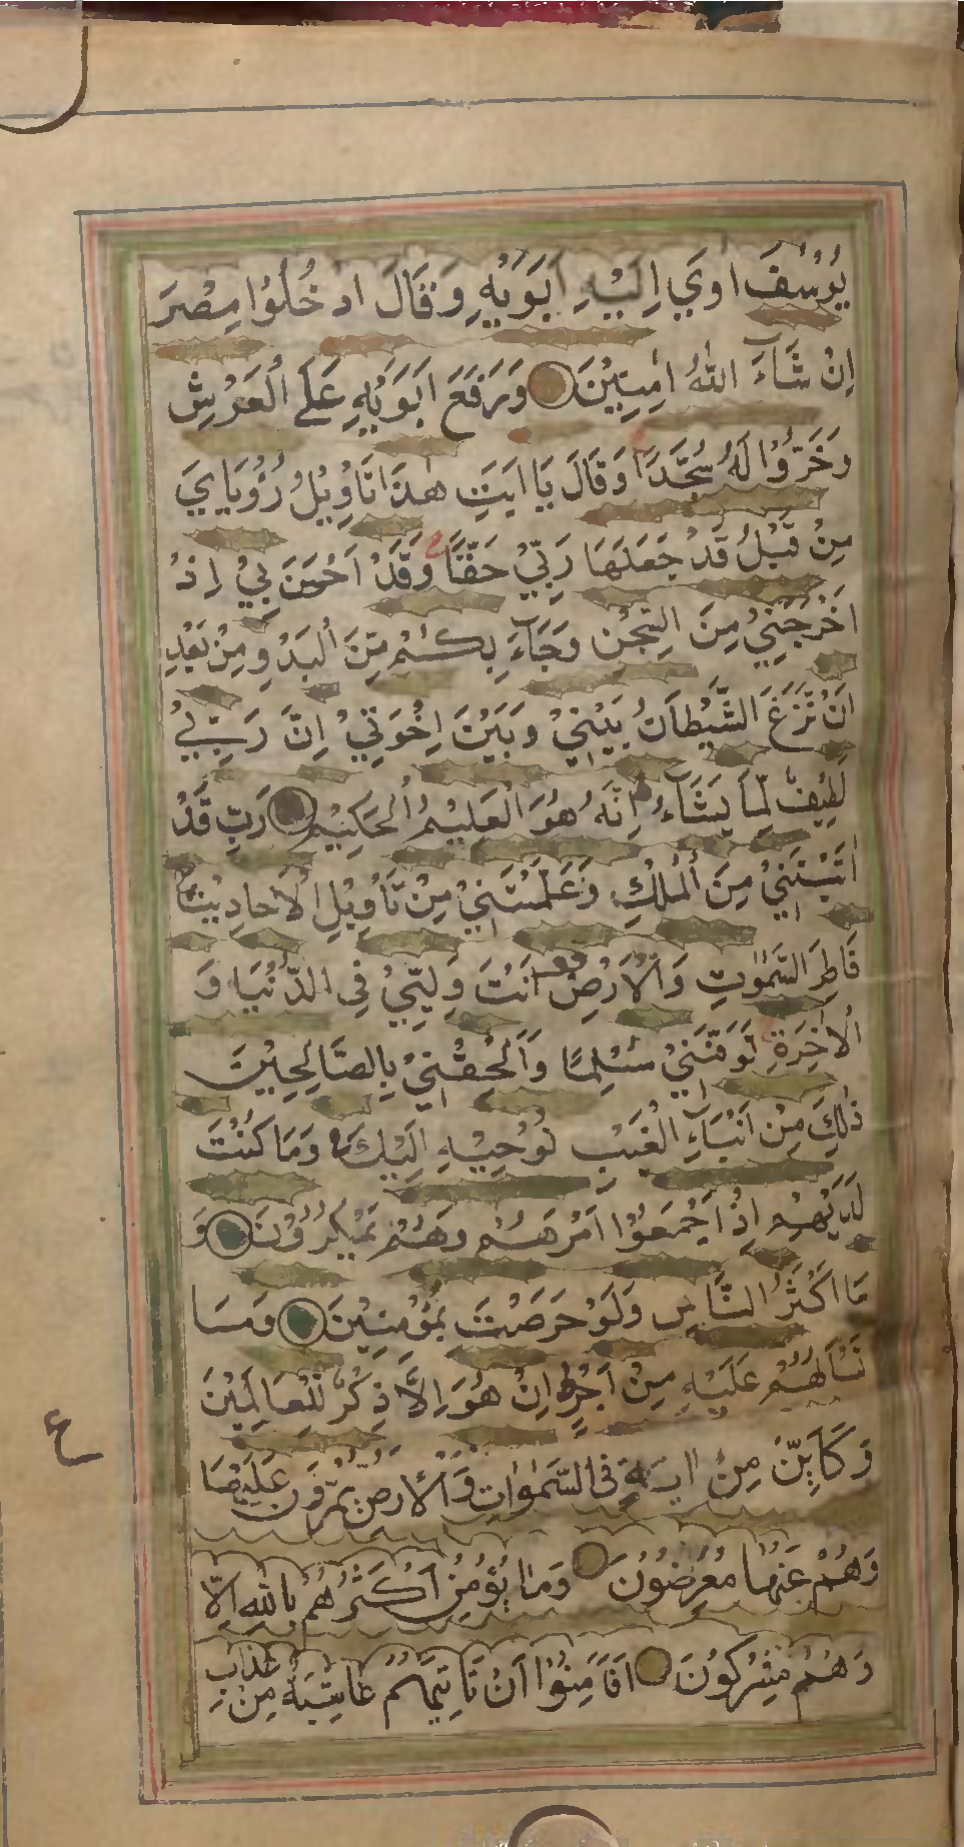 يُوْسُفَ اٰوٰي اِلَيْهِ اَبَوَيْهِ وَقَالَ ادْخُلُوْا مِصْرَ
اِنْ شَآءَ اللّٰهُ اٰمِنِيْنَ وَرَفَعَ اَبَوَيْهِ عَلَى الْعَرْشِ
وَخَرُّوْا لَهٗ سُجَّدًا وَقَالَ يَا اَبَتِ هٰذَا تَاْوِيْلُ رُؤْيَايَ
مِنْ قَبْلُ قَدْ جَعَلَهَا رَبِّيْ حَقًّا وَقَدْ اَحْسَنَ بِيْ اِذْ
اَخْرَجَنِيْ مِنَ السِّجْنِ وَجَآءَ بِكُمْ مِّنَ الْبَدْوِ مِنْ بَعْدِ
اَنْ نَّزَغَ الشَّيْطَانُ بَيْنِيْ وَبَيْنَ اِخْوَتِيْ اِنَّ رَبِّيْ
لَطِيْفٌ لِّمَا يَشَآءُ اِنَّهٗ هُوَ الْعَلِيْمُ الْحَكِيْمُ رَبِّ قَدْ
اٰتَيْتَنِيْ مِنَ الْمُلْكِ وَعَلَّمْتَنِيْ مِنْ تَاْوِيْلِ الْاَحَادِيْثِ
فَاطِرَ السَّمٰوٰتِ وَالْاَرْضِ اَنْتَ وَلِيِّيْ فِي الدُّنْيَا وَ
الْاٰخِرَةِ تَوَفَّنِيْ مُسْلِمًا وَّاَلْحِقْنِيْ بِالصَّالِحِيْنَ
ذٰلِكَ مِنْ اَنْبَآءِ الْغَيْبِ نُوْحِيْهِ اِلَيْكَ وَمَا كُنْتَ
لَدَيْهِمْ اِذْ اَجْمَعُوْا اَمْرَهُمْ وَهُمْ يَمْكُرُوْنَ وَ
مَا اَكْثَرُ النَّاسِ وَلَوْ حَرَصْتَ بِمُؤْمِنِيْنَ وَمَا
تَسْاَلُهُمْ عَلَيْهِ مِنْ اَجْرٍ اِنْ هُوَ اِلَّا ذِكْرٌ لِّلْعَالَمِيْنَ
وَكَاَيِّنْ مِنْ اٰيَةٍ فِي السَّمٰوٰاتِ وَالْاَرْضِ يَمُرُّوْنَ عَلَيْهَا
ع
وَهُمْ عَنْهَا مُعْرِضُوْنَ وَمَا يُؤْمِنُ اَكْثَرُهُمْ بِاللّٰهِ اِلَّا
وَهُمْ مُشْرِكُوْنَ اَفَاَمِنُوْا اَنْ تَاْتِيَهُمْ غَاشِيَةٌ مِنْ عَذَابِ